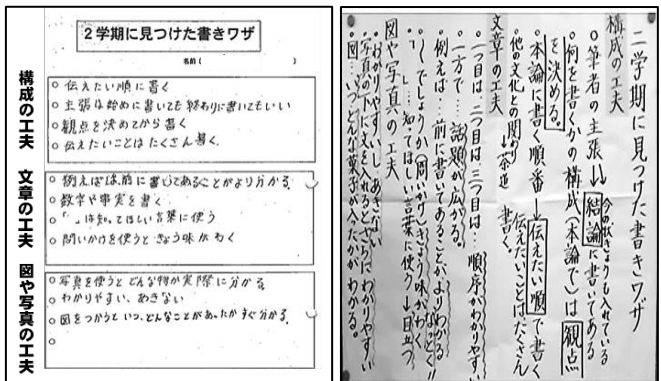 2学期に見つけた書きワザ
名前(　　　　)
構成の工夫
○ 伝えたい順に書く
○ 主張は始めに書いても終わりに書いてもいい
○ 観点を決めてから書く
○ 伝えたいことはたくさん書く。
文章の工夫
○ 例えばは、前に書いてあることがより分かる。
○ 数字や事実を書く
○ 「　」は知ってほしい言葉に使う
○ 問いかけを使うときょう味がわく
図や写真の工夫
○ 写真を使うとどんな物が実際に分かる
○ わかりやすい、あきない
○ 図をつかうといつ、どんなことがあったかすぐ分かる。
○
二学期に見つけた書きワザ
構成の工夫
○筆者の主張→結論に書いてある
○何を書くかの構成(本論で)は観点
を決める。
・本論に書く順番→伝えたい順で書く
他の文化との関わり→茶道
伝えたいことはたくさん
書く。
文章の工夫
・一つ目は、二つ目は、三つ目は…順序がわかりやすい
・一方で…話題が広がる。
・例えば…前に書いてあることがよりわかる
・〜でしょうか(問いかけ)きょう味がわく
・「　」…知ってほしい言葉に使う→目立つ
図や写真の工夫
・わかりやすいし、あきない
・写真の下に文を入れるとさらにわかりやすい
・図…いつどんな菓子が入ったかがわかる。